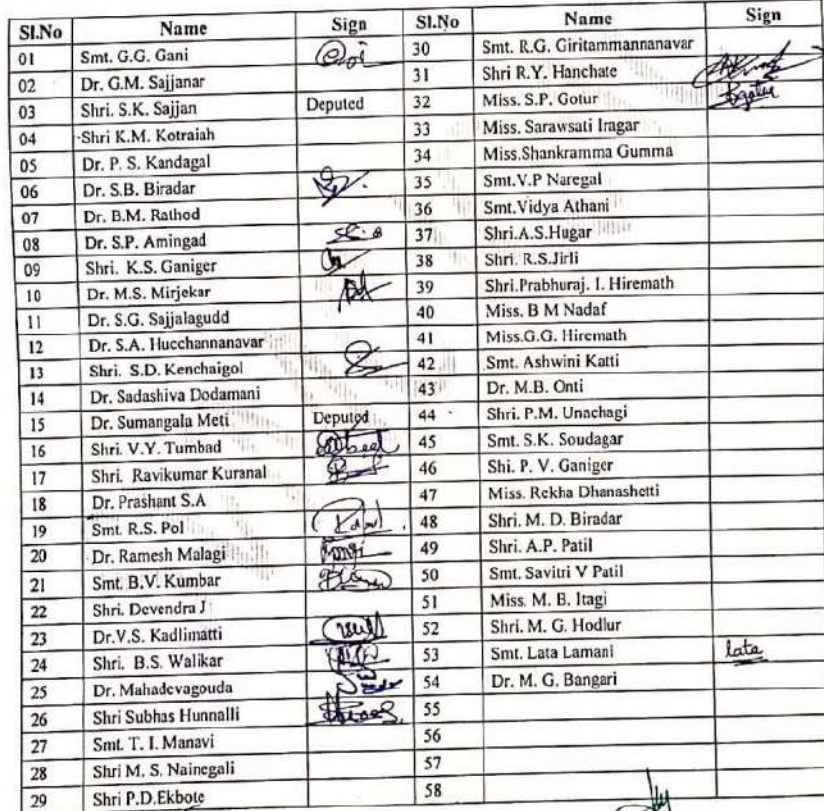 Sl.No Name Sign Sl.No Name Sign
01 Smt. G.G. Gani 30 Smt. R.G. Giritammannanavar
02 Dr. G.M. Sajjanar 31 Shri R.Y. Hanchate
03 Shri. S.K. Sajjan Deputed 32 Miss. S.P. Gotur
04 Shri K.M. Kotraiah 33 Miss. Sarawsati Iragar
05 Dr. P. S. Kandagal 34 Miss.Shankramma Gumma
06 Dr. S.B. Biradar 35 Smt.V.P Naregal
07 Dr. B.M. Rathod 36 Smt.Vidya Athani
08 Dr. S.P. Amingad 37 Shri.A.S.Hugar
09 Shri. K.S. Ganiger 38 Shri. R.S.Jirli
10 Dr. M.S. Mirjekar 39 Shri.Prabhuraj. I. Hiremath
11 Dr. S.G. Sajjalagudd 40 Miss. B M Nadaf
12 Dr. S.A. Hucchannanavar 41 Miss.G.G. Hiremath
13 Shri. S.D. Kenchaigol 42 Smt. Ashwini Katti
14 Dr. Sadashiva Dodamani 43 Dr. M.B. Onti
15 Dr. Sumangala Meti Deputed 44 Shri. P.M. Unachagi
16 Shri. V.Y. Tumbad 45 Smt. S.K. Soudagar
17 Shri. Ravikumar Kuranal 46 Shi. P. V. Ganiger
18 Dr. Prashant S.A 47 Miss. Rekha Dhanashetti
19 Smt. R.S. Pol 48 Shri. M. D. Biradar
20 Dr. Ramesh Malagi 49 Shri. A.P. Patil
21 Smt. B.V. Kumbar 50 Smt. Savitri V Patil
22 Shri. Devendra J 51 Miss. M. B. Itagi
23 Dr.V.S. Kadlimatti 52 Shri. M. G. Hodlur
24 Shri. B.S. Walikar 53 Smt. Lata Lamani lata
25 Dr. Mahadevagouda 54 Dr. M. G. Bangari
26 Shri Subhas Hunnalli 55
27 Smt. T. I. Manavi 56
28 Shri M. S. Nainegali 57
29 Shri P.D.Ekbote 58